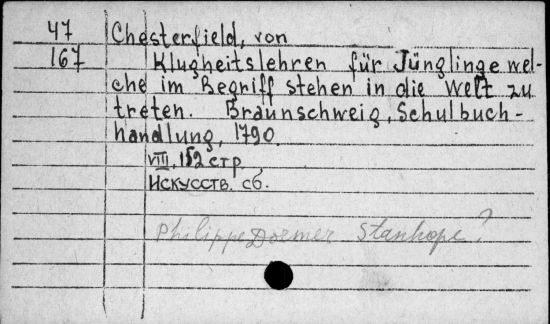 47
167
Chesterfield, von
Klugheitslehren für Jünglinge wel-
che im Begriff stehen in die Welt zu
treten. Braunschweig, Schulbuch-
handlung, 1790.
VIII, 152 стр
Искусств. сб.
Philippe Dormer Stanhope?